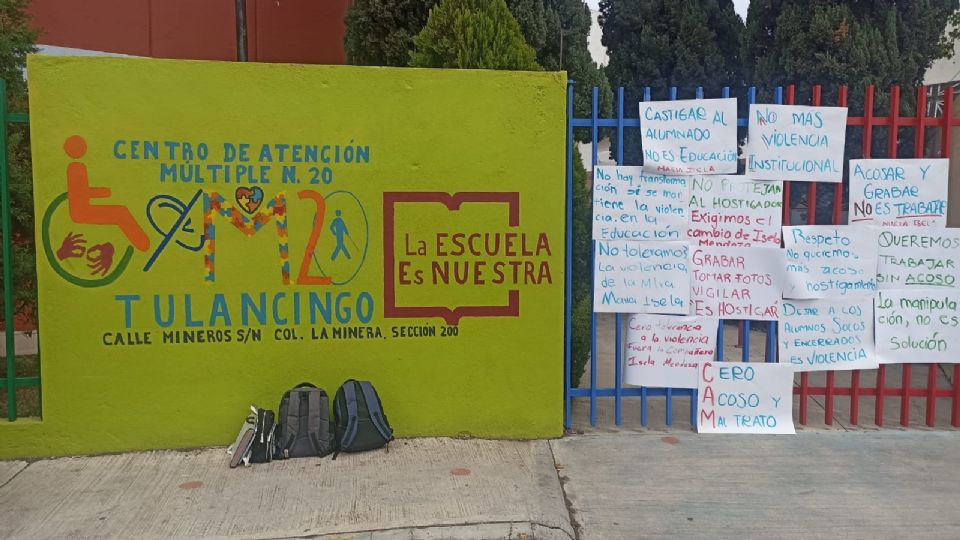 CENTRO DE ATENCIÓN
MÚLTIPLE N. 20
M20
TULANCINGO
CALLE MINEROS S/N COL. LA MINERA, SECCIÓN 200
LA ESCUELA
ES NUESTRA
CASTIGAR AL
ALUMNADO
NO ES EDUCACIÓN
MARIA ISELA
NO MAS
VIOLENCIA
INSTITUCIONAL
ACOSAR Y
GRABAR
NO ES TRABAJAR
MARIA ISELA
No hay transforma
ción si se man
tiene la violen
cia en la
Educación
NO PROTEJAN
AL HOSTIGADOR
Exigimos el
cambio de Isela
Mendoza
Respeto
No queremos
mas acoso
hostigamiento
QUEREMOS
TRABAJAR
SIN ACOSO
No toleramos
la violencia
de la Mtra
Maria Isela
GRABAR
TOMAR FOTOS
VIGILAR
ES HOSTIGAR
DEJAR A LOS
ALUMNOS SOLOS
Y ENCERRADOS
ES VIOLENCIA
La manipula
ción, no es
solución
Cero tolerancia
a la violencia
fuera la compañera
Isela Mendoza
CERO
ACOSO Y
MALTRATO